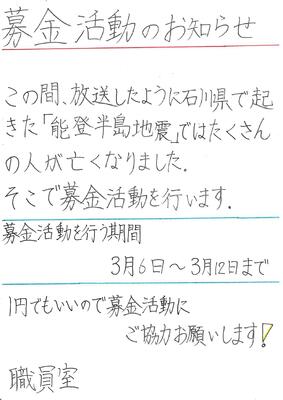 募金活動のお知らせ
この間、放送したように石川県で起
きた「能登半島地震」ではたくさん
の人が亡くなりました.
そこで募金活動を行います.
募金活動を行う期間
3月6日〜3月12日まで
1円でもいいので募金活動に
ご協力お願いします!
職員室